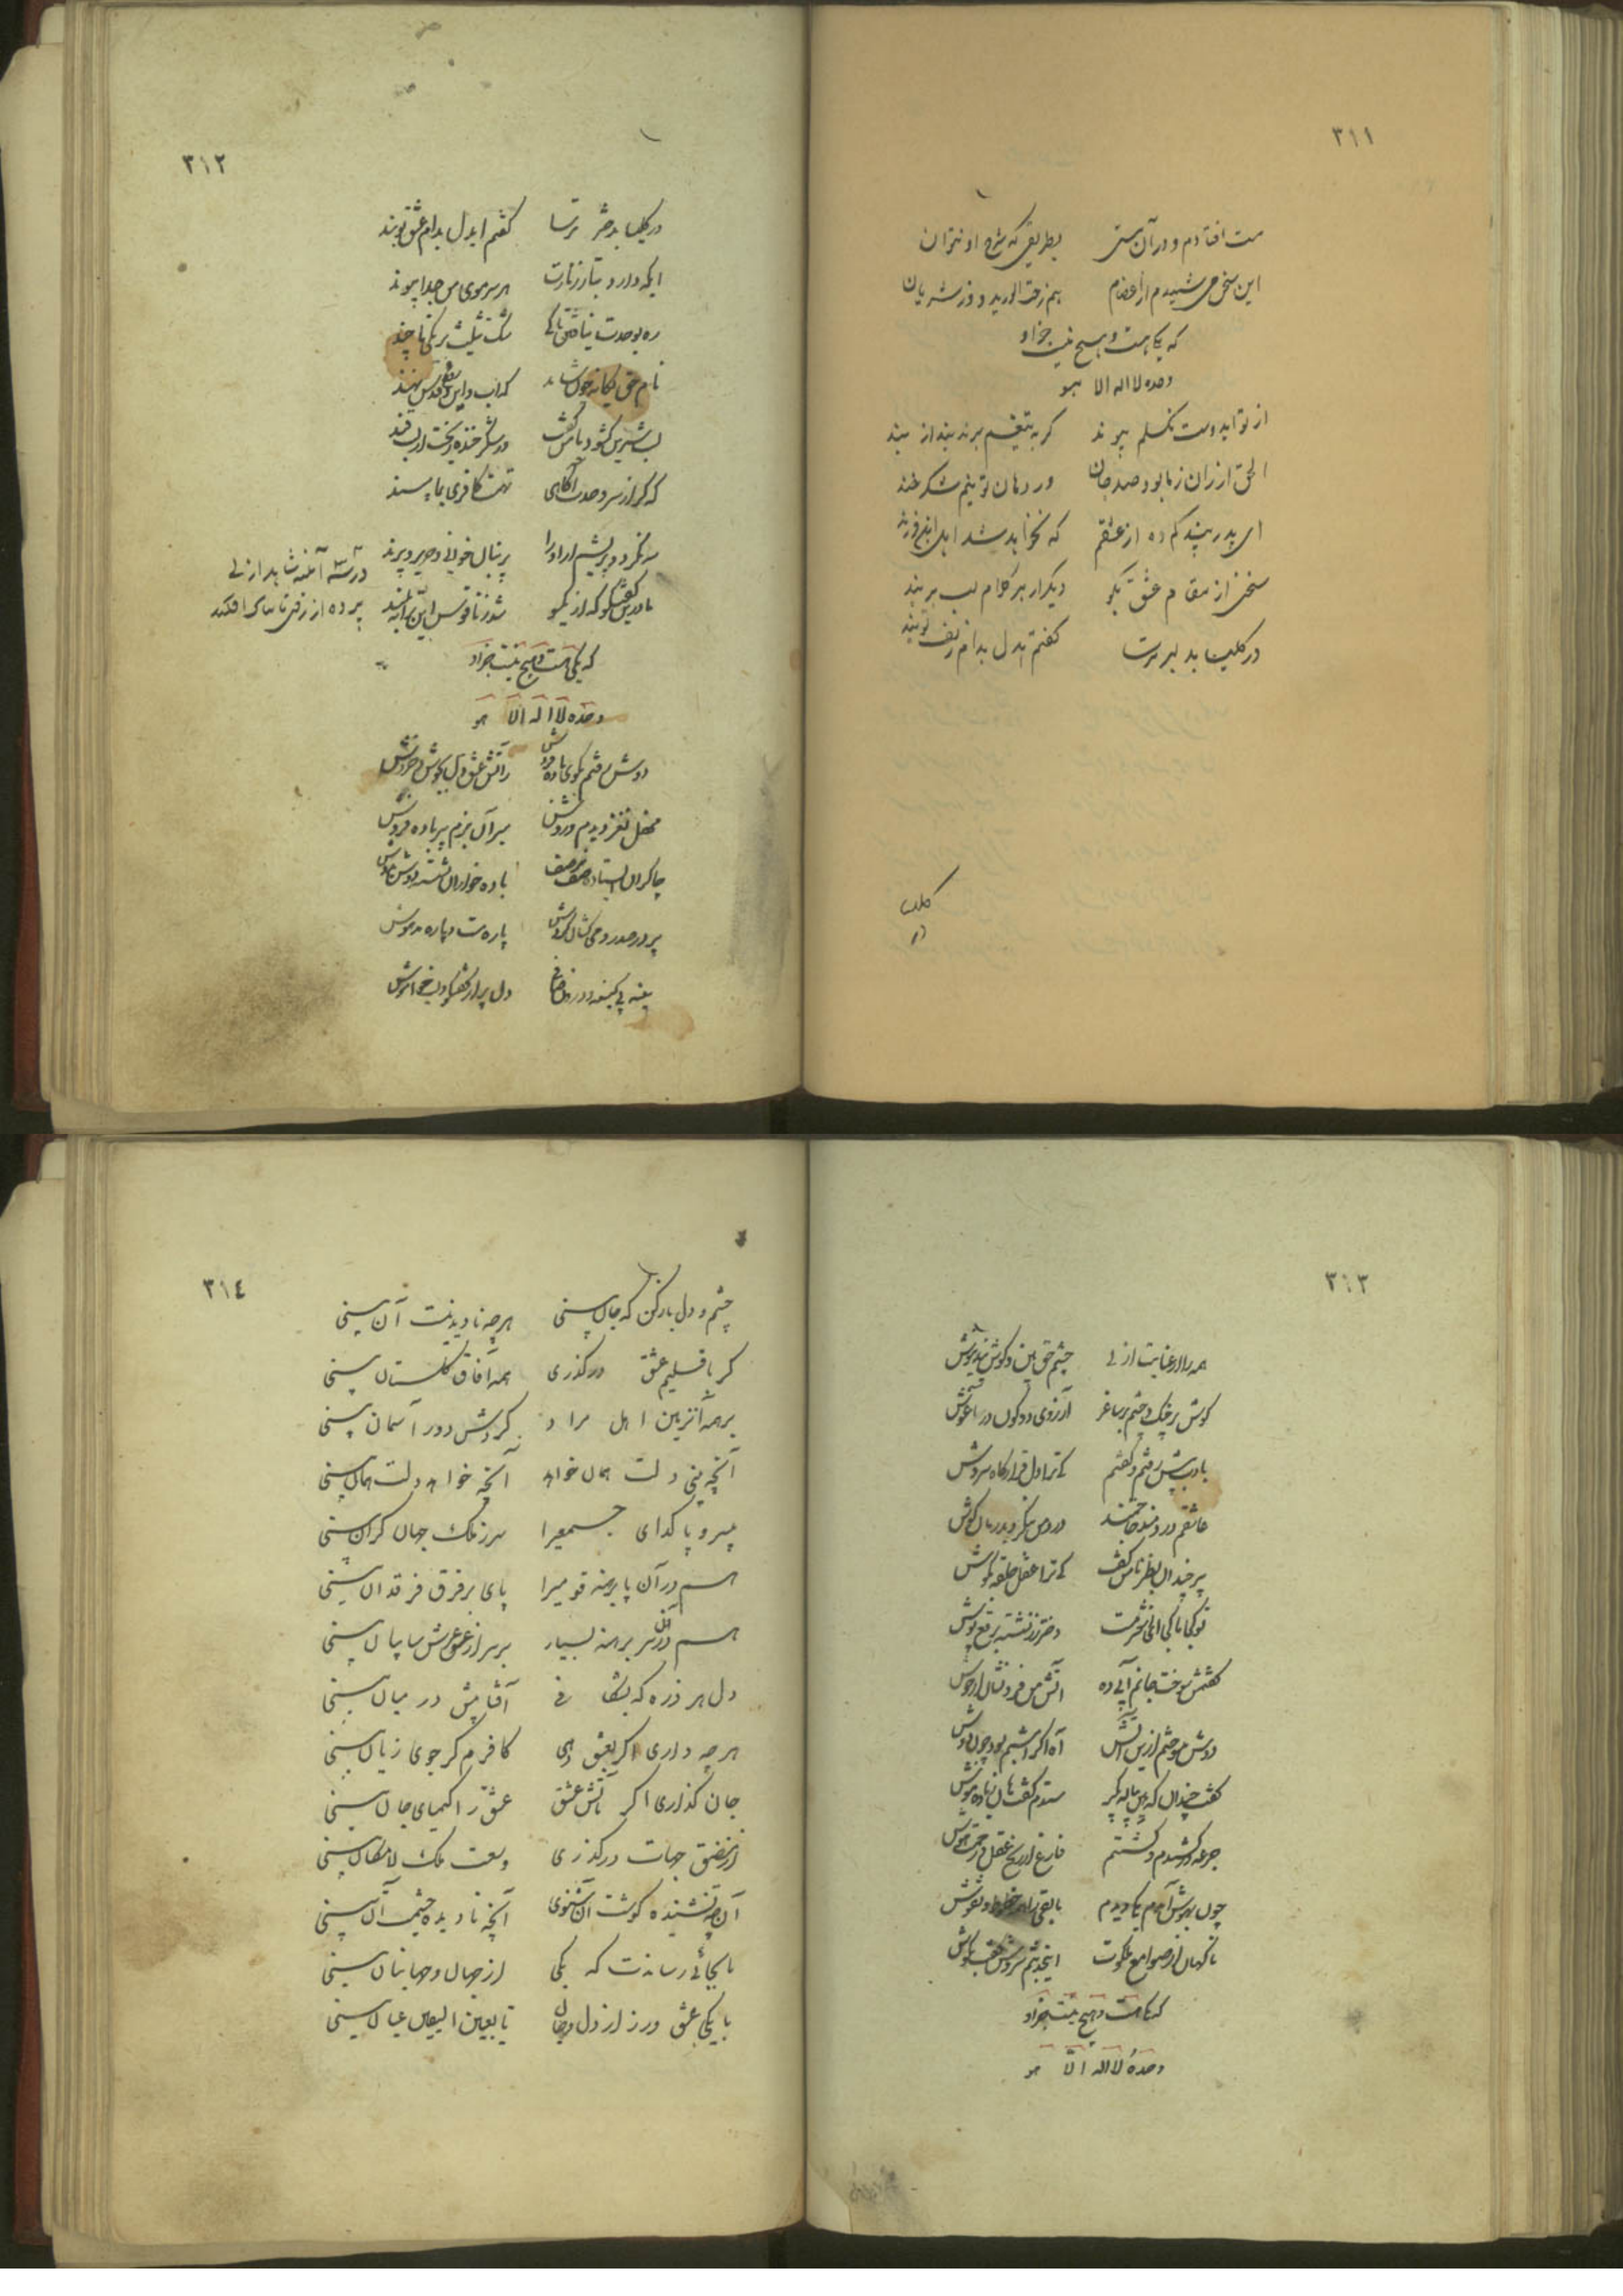 ٣١١
مست افتادم و در آن مستی بطریقی که شرح او نتوان
این سخن می شنیدم از اعضام همه حتی الورید و الشریان
که یکی هست و هیچ نیست جز او
وحده لا اله الا هو
از تو ایدوست نکسلم پیوند کر به تیغم برند بند از بند
الحق ارزان بود ز ما صد جان وز دهان تو نیم شکر خند
ای پدر پند کم ده از عشقم که نخواهد شد اهل این فرزند
سخن از مقام عشق بکو
در کلیسا بدلبر ترسا کفتم ایدل بدام زلف تو بند
کلیسا
٣١٢
در کلیسا بدختر ترسا کفتم ایدل بدام عشق تو بند
ایکه دارد بتار زنارت هر سر موی من جدا پیوند
ره بوحدت نیافتن تا کی ننک تثلیث بر یکی تا چند
نام حق یکانه چون شاید که اب و ابن و روح قدس نهند
لب شیرین کشود و با من کفت در شکر خنده ریخت از لب قند
که کر از سر وحدت آکاهی تهمت کافری بما مپسند
در سه آئینه شاهد ازلی پرده از رخ تابناک افکند
سه نکردد بریشم ار او را پرنیان خوانی و حریر و پرند
ما در این کفتکو که از یکسو شد ز ناقوس این ترانه بلند
که یکی هست و هیچ نیست جز او
وحده لا اله الا هو
دوش رفتم بکوی باده فروش ز آتش عشق دل بجوش و خروش
محفلی نغز دیدم و روشن میر آن بزم پیر باده فروش
چاکران ایستاده صف در صف باده خواران نشسته دوش بدوش
پیر در صدر و می کشان کردش پاره مست و پاره مدهوش
سینه بی کینه و درون صافی دل پر از کفتکو و لب خاموش
٣١٣
همه را از عنایت ازلی چشم حق بین و کوش پند نیوش
کوش بر چنک و چشم بر ساغر آرزوی دو کون در آغوش
بادب پیش رفتم و کفتم کای ترا دل قرارکاه سروش
عاشقم دردمند و حاجتمند درد من بنکر و بدرمان کوش
پیر خندان بطنز با من کفت کای ترا عقل حلقه بکوش
تو کجا ما کجا ای از شرمت دختر رز نشسته برقع پوش
کفتمش سوخت جانم آبی ده آتش من فرو نشان از جوش
دوش میسوختم ازین آتش آه اکر امشبم بود چون دوش
کفت خندان که هین پیاله بکیر ستدم کفت هان زیاده منوش
جرعه درکشیدم و کشتم فارغ از رنج عقل و زحمت هوش
چون بهوش آمدم یکی دیدم مابقی را همه خطوط و نقوش
ناکهان از صوامع ملکوت این حدیثم سروش کفت بکوش
که یکی هست و هیچ نیست جز او
وحدهُ لا اله الّا هو
٣١٤
چشم دل باز کن که جان بینی هرچه نادیدنیست آن بینی
کر باقلیم عشق درکذری همه آفاق کلستان بینی
بر همه اهل مراد کردش دور آسمان بینی
آنچه بینی دلت همان خواهد آنچه خواهد دلت همان بینی
بیسر و پا کدای جمعیرا سر ز ملک جهان کران بینی
هم در آن پا برهنه قومیرا پای بر فرق فرقدان بینی
هم در آن سر برهنه بسیار بر سر از عرش سایبان بینی
دل هر ذره که بشکافی آفتابیش در میان بینی
هرچه داری اکر بعشق دهی کافرم کر جوی زیان بینی
جان کدازی اکر بآتش عشق عشق را کیمیای جان بینی
از مضیق جهات درکذری وسعت ملک لامکان بینی
آنچه نشنیده کوشت آن شنوی آنچه نادیده چشمت آن بینی
تا بجائی رساندت که یکی از جهان و جهانیان بینی
با یکی عشق ورز از دل و جان تا بعین الیقین عیان بینی